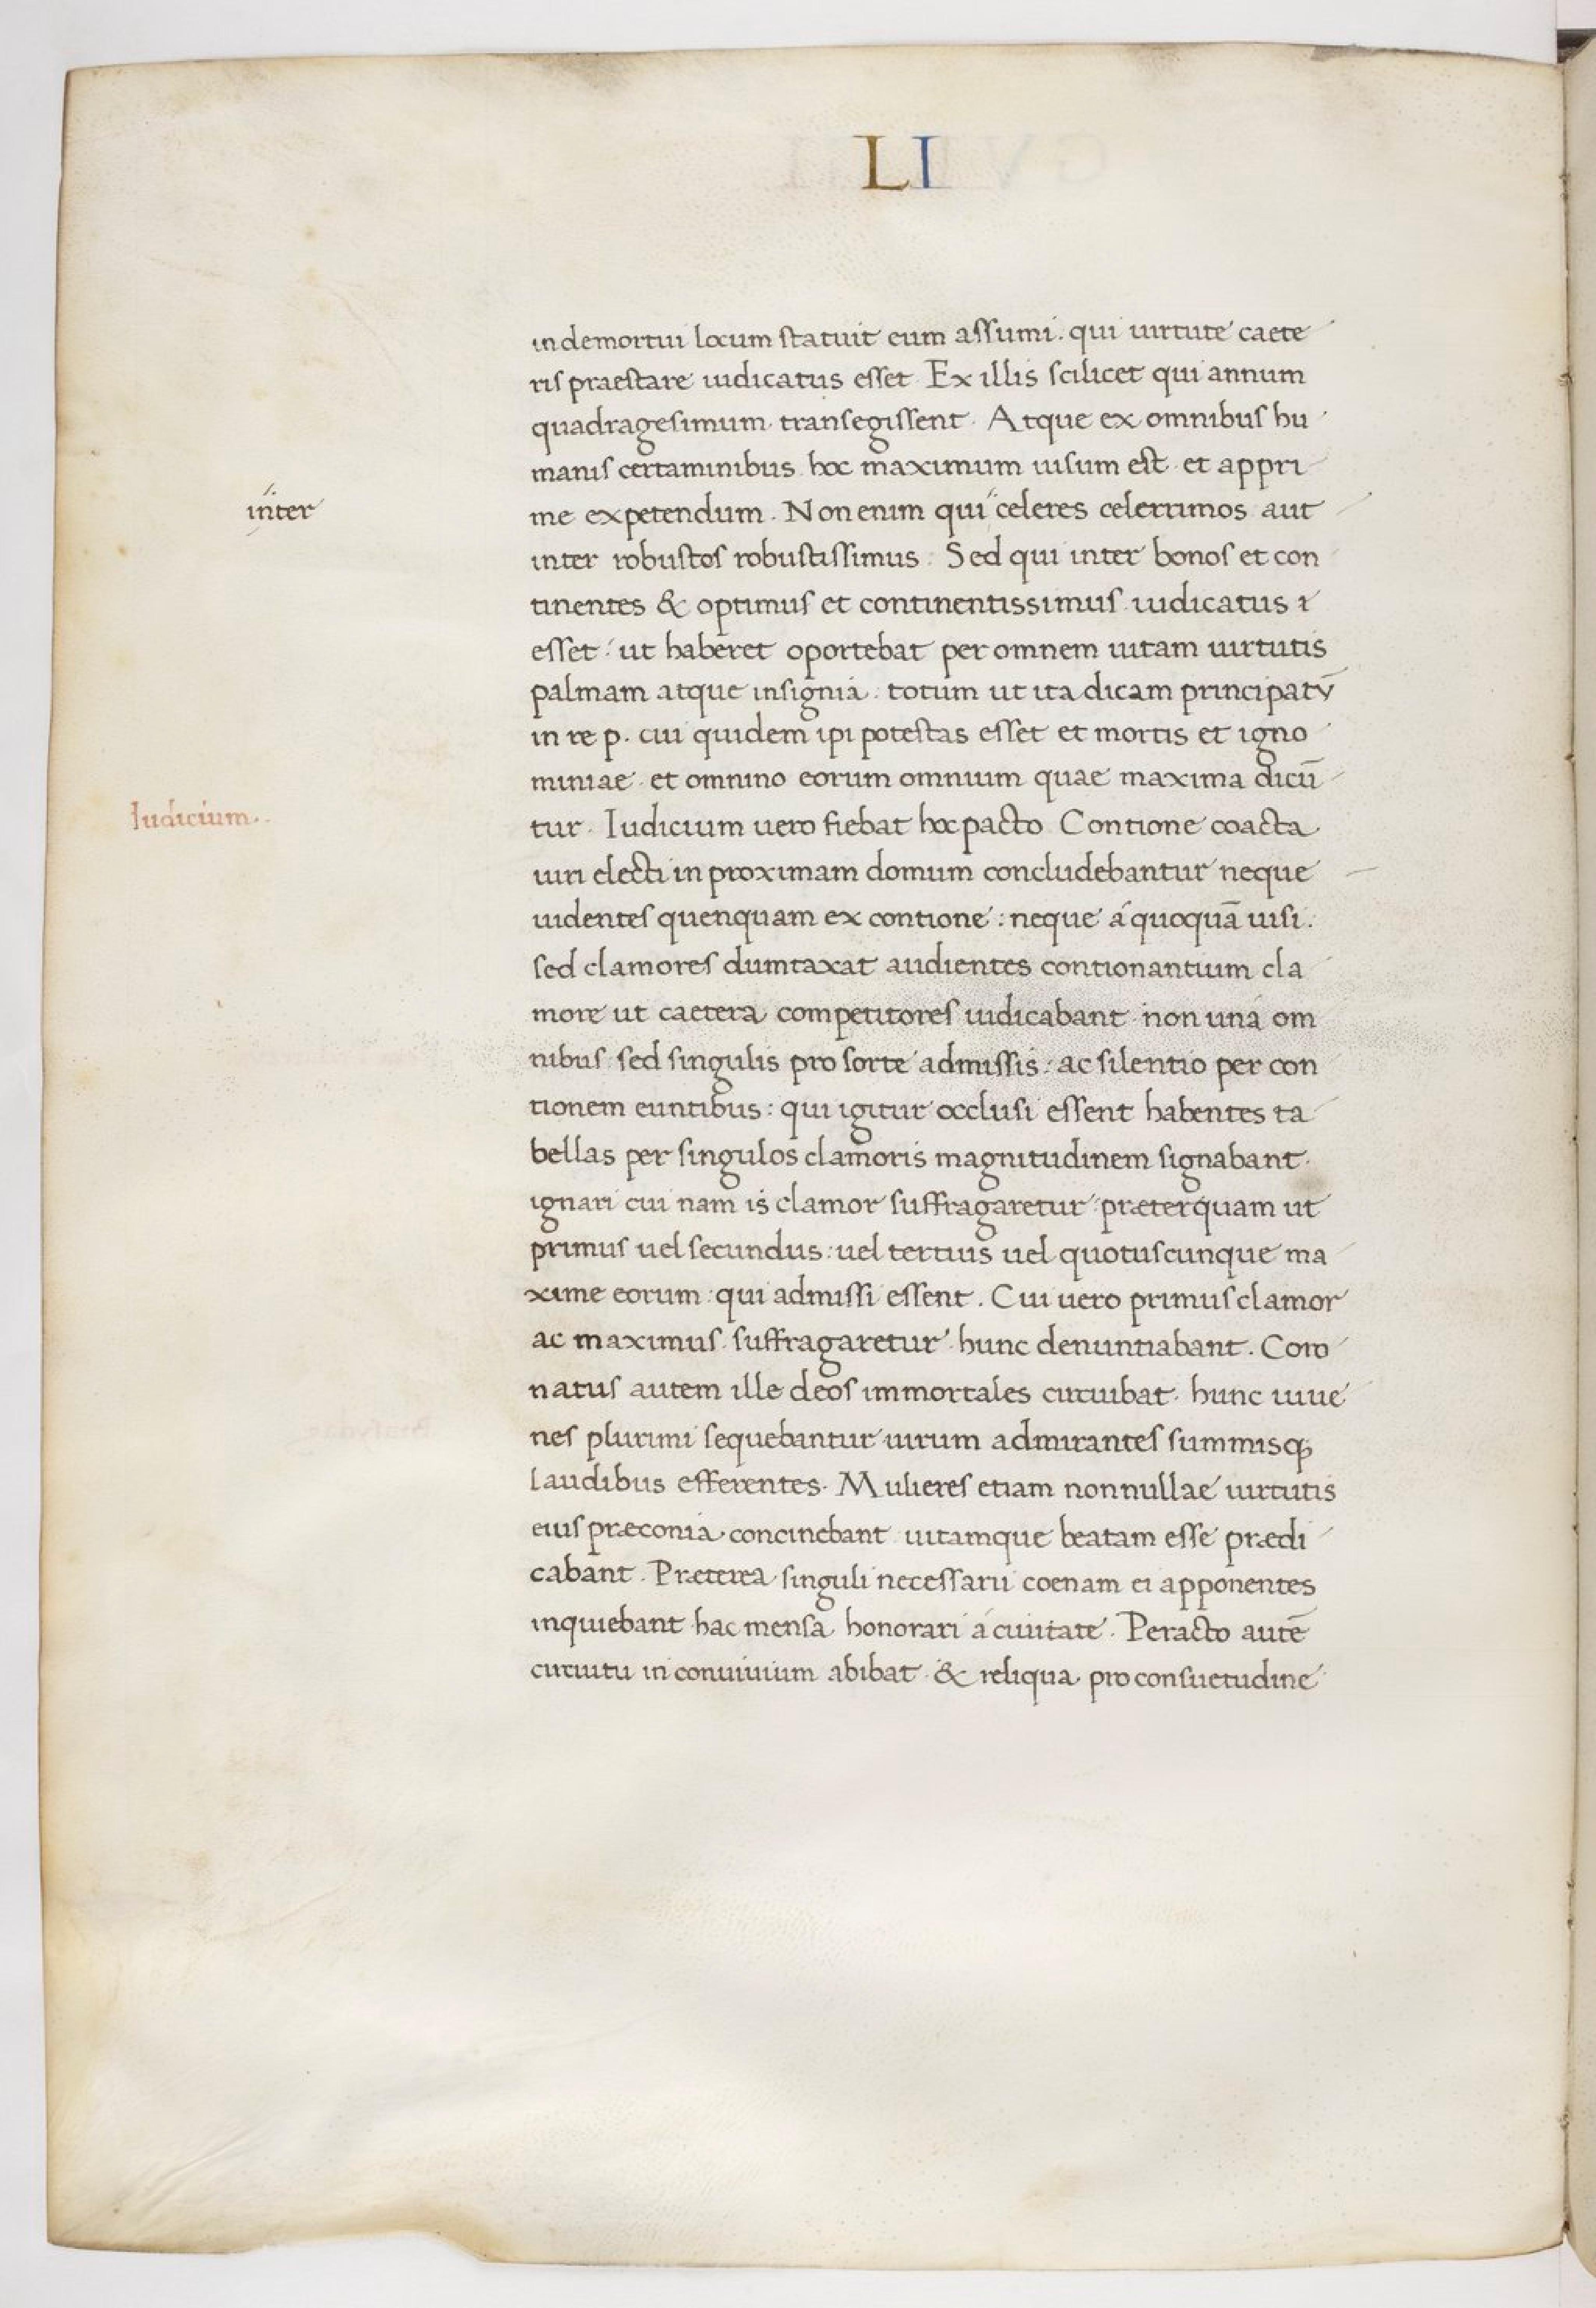 LI
in demortui locum statuit eum assumi. qui uirtute caete
ris praestare iudicatus esset Ex illis scilicet qui annum
quadragesimum transegissent. Atque ex omnibus hu
manis certaminibus hoc maximum uisum est et appri
inter
me expetendum. Non enim qui celeres celerrimos aut
inter robustos robustissimus. Sed qui inter bonos et con
tinentes & optimus et continentissimus iudicatus
esset: ut haberet oportebat per omnem uitam uirtutis
palmam atque insignia. totum ut ita dicam principatū
in re p. cui quidem ipi potestas esset et mortis et igno
miniae et omnino eorum omnium quae maxima dicū
Iudicium..
tur. Iudicium uero fiebat hoc pacto Contione coacta
uiri electi in proximam domum concludebantur neque
uidentes quenquam ex contione: neque á quoquā uisi.
sed clamores dumtaxat audientes contionantium cla
more ut caetera competitores iudicabant non uná om
nibus sed singulis pro sorte admissis: ac silentio per con
tionem euntibus: qui igitur occlusi essent habentes ta
bellas per singulos clamoris magnitudinem signabant.
ignari cui nam is clamor suffragaretur præterquam ut
primus uel secundus: uel tertius uel quotuscunque ma
xime eorum: qui admissi essent. Cui uero primus clamor
ac maximus suffragaretur hunc denuntiabant. Coro
natus autem ille deos immortales circuibat. hunc iuue
nes plurimi sequebantur uirum admirantes summisq;
laudibus efferentes. Mulieres etiam nonnullae uirtutis
eius præconia concinebant uitamque beatam esse prædi
cabant. Præterea singuli necessarii coenam ei apponentes
inquiebant hac mensa honorari á ciuitate. Peracto autē
circuitu in conuiuium abibat & reliqua pro consuetudine